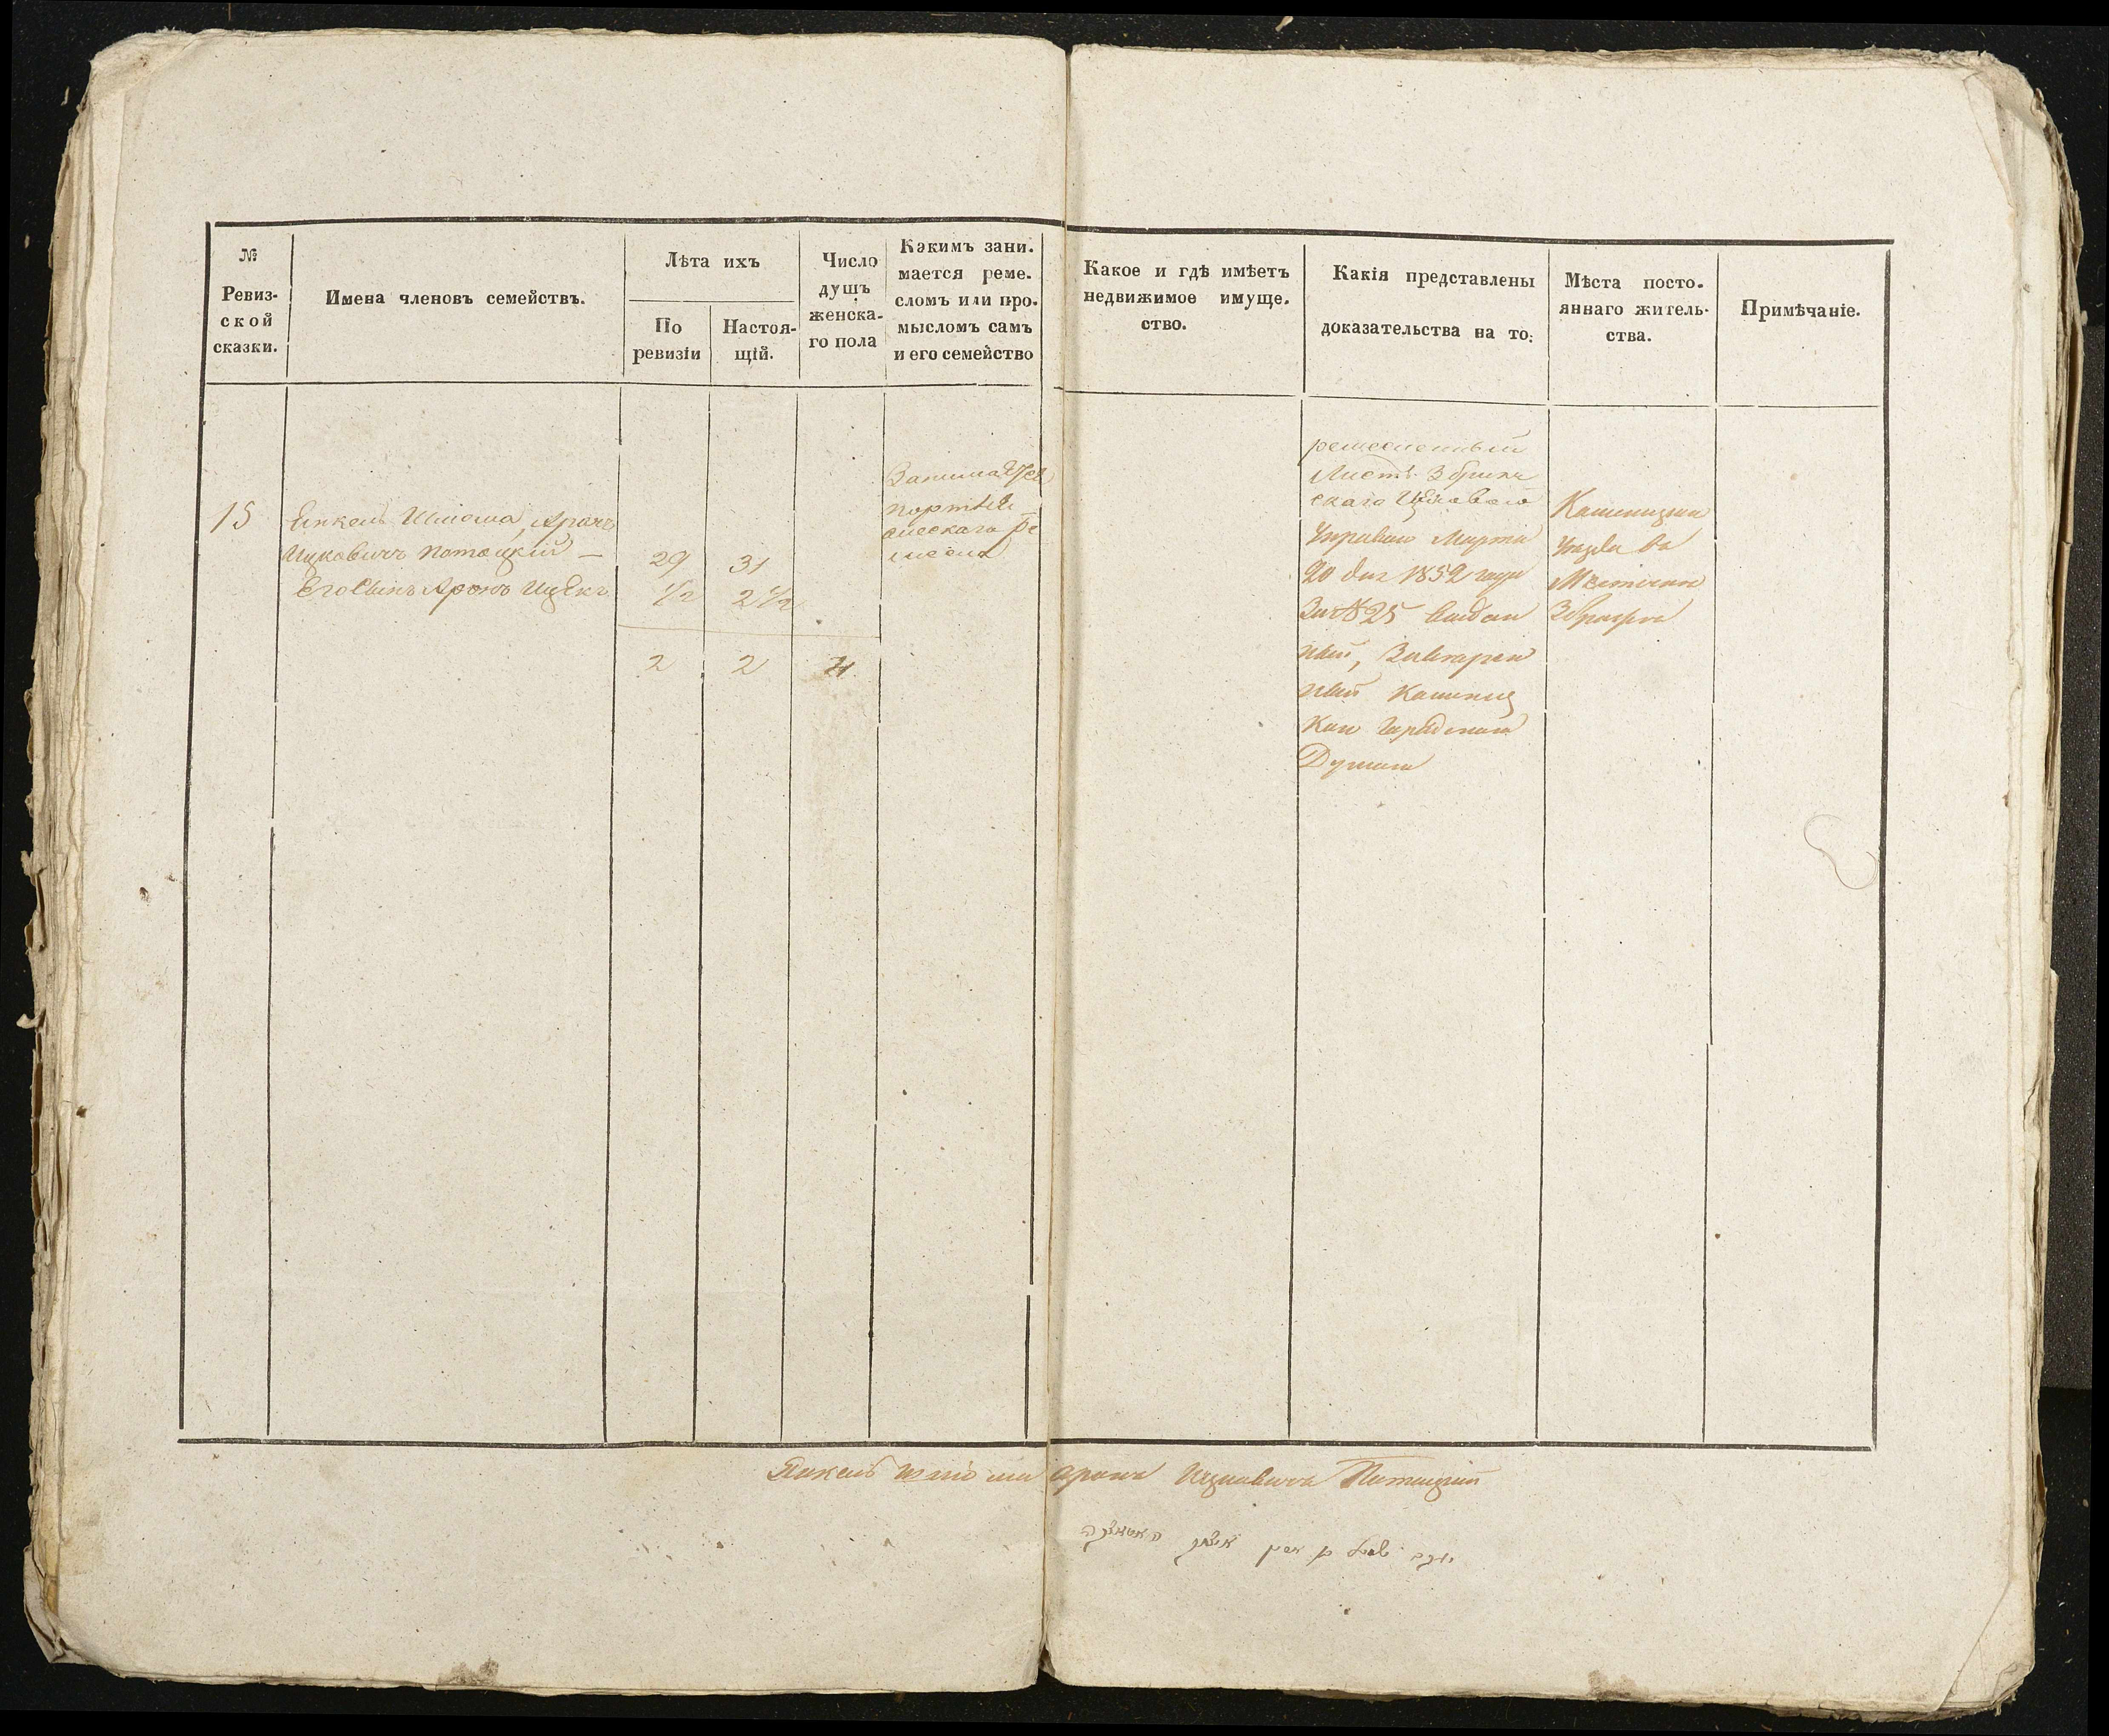 №
Ревиз-
ской
сказки.
Имена членовъ семействъ.
Лѣта ихъ
По
ревизіи
Настоя-
щій.
Число
душъ
женска-
го пола
Какимъ зани-
мается реме-
сломъ или про-
мысломъ самъ
и его семейство
Какое и гдѣ имѣетъ
недвижимое имуще-
ство.
Какія представлены
доказательства на то:
Мѣста посто-
яннаго житель-
ства.
Примѣчаніе.
15
Янкель Шлема, Аронъ
Ицковичъ Потоцкій —
29 31
Его Сынъ Аронъ Ицекъ
1/2 2 1/2
2 2
Занимается
портня-
ческаго ре
месла
ремесленный
Листъ Збриж
скаго Цеховаго
Управою Марта
20 дня 1852 года
За № 25 выдан
ный,
ный Каменец
Кою Городскою
Думою
Каменецкаго
Уезда въ
Местечке
Збрижке
Янкель Шлема Арона Ицковича Потоцкій